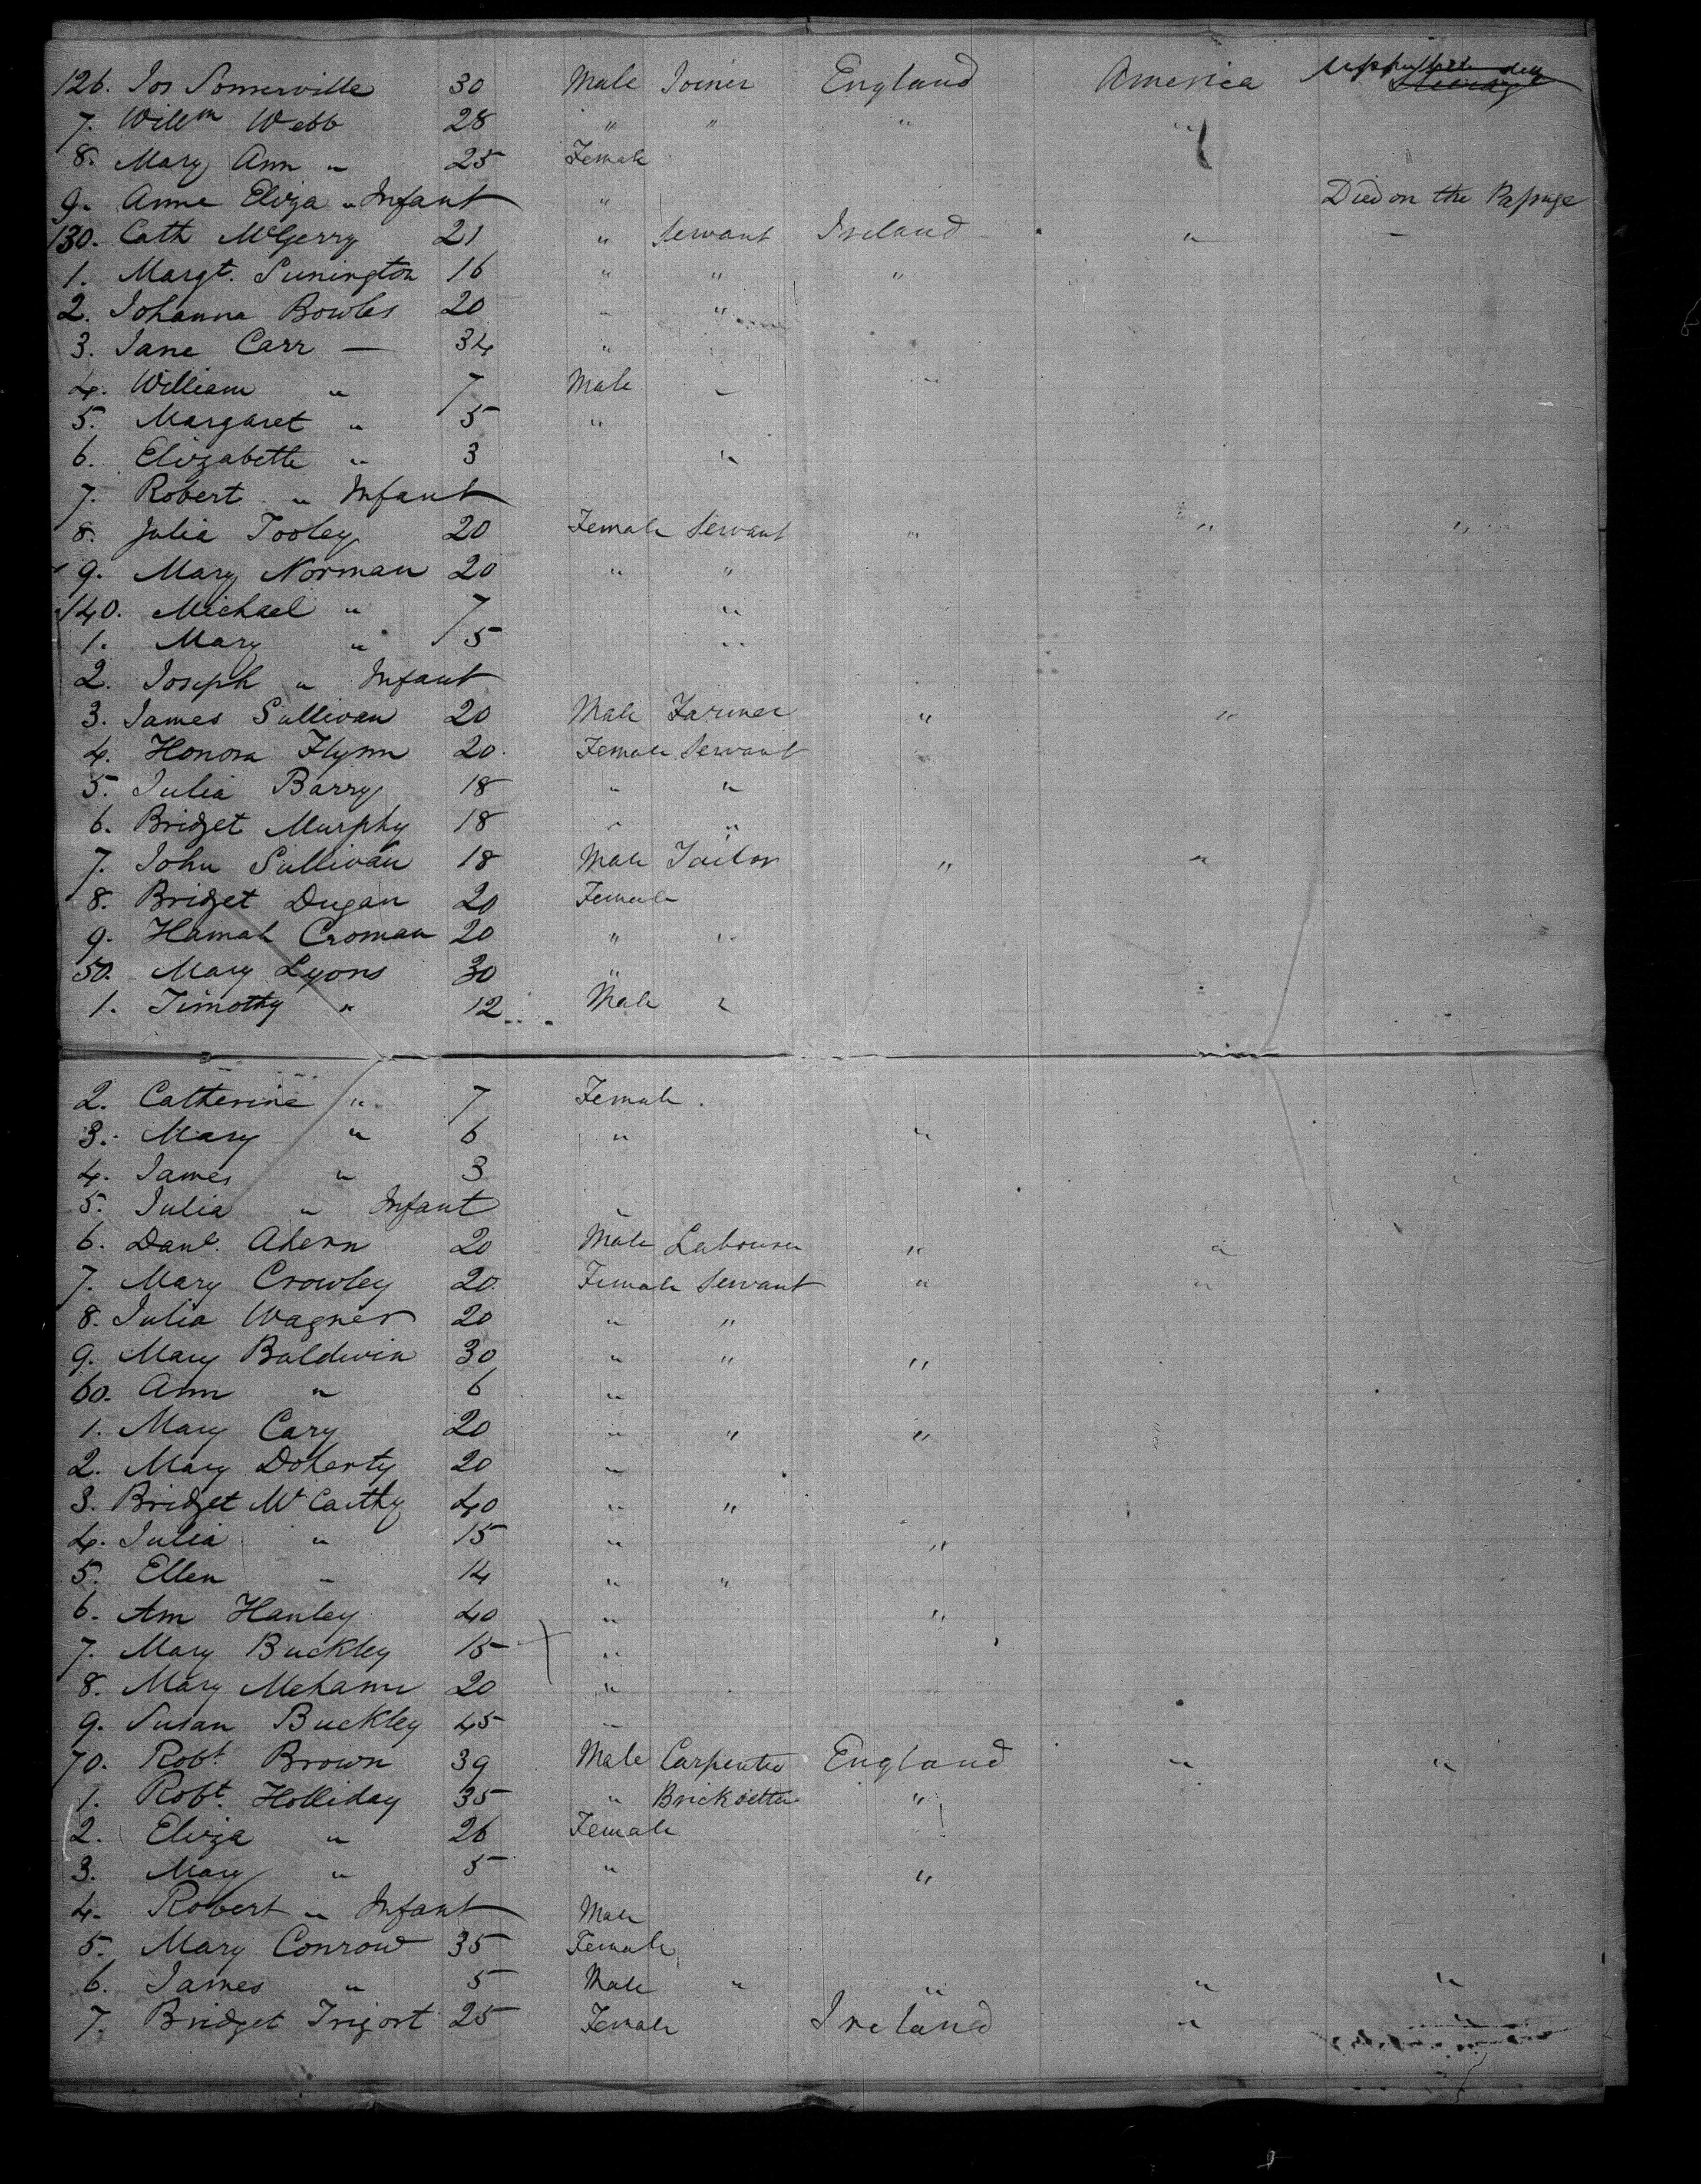 126. Jos Somerville 30 Male Joiner England America Upper
7. Willm Webb 28 " " " "
8. Mary Ann " 25 Female "
9. Anne Eliza " Infant " Died on the Passage
130. Cath McGerry 21 " Servant Ireland "
1. Margt. Sunington 16 " " "
2. Johanna Bowles 20 " "
3. Jane Carr — 34 "
4. William " 7 Male " "
5. Margaret " 5 "
6. Elizabeth " 3 "
7. Robert " Infant
8. Julia Tooley 20 Female Servant " " "
9. Mary Norman 20 " "
140. Michael " 7 "
1. Mary " 5 "
2. Joseph " Infant
3. James Sullivan 20 Male Farmer " "
4. Honora Flynn 20 Female Servant
5. Julia Barry 18 " "
6. Bridget Murphy 18 " "
7. John Sullivan 18 Male Tailor " "
8. Bridget Dugan 20 Female
9. Hamah Croman 20 " "
50. Mary Lyons 30 "
1. Timothy " 12 Male "
2. Catherine " 7 Female
3. Mary " 6 " "
4. James " 3
5. Julia " Infant "
6. Danl. Ahern 20 Male Labourer " "
7. Mary Crowley 20 Female Servant " "
8. Julia Wagner 20 " "
9. Mary Baldwin 30 " " "
60. Ann " 6 "
1. Mary Cary 20 " " " "
2. Mary Doherty 20 "
3. Bridget McCarthy 40 " "
4. Julia " 15 " "
5. Ellen " 14 " "
6. Ann Hanley 40 " "
7. Mary Buckley 15 "
8. Mary Mehann 20 "
9. Susan Buckley 45 "
70. Robt. Brown 39 Male Carpenter England " "
1. Robt. Holliday 35 " Bricksetter "
2. Eliza " 26 Female
3. Mary " 5 " "
4. Robert " Infant Male
5. Mary Conrow 35 Female
6. James " 5 Male " " " "
7. Bridget Trigort 25 Female Ireland " "